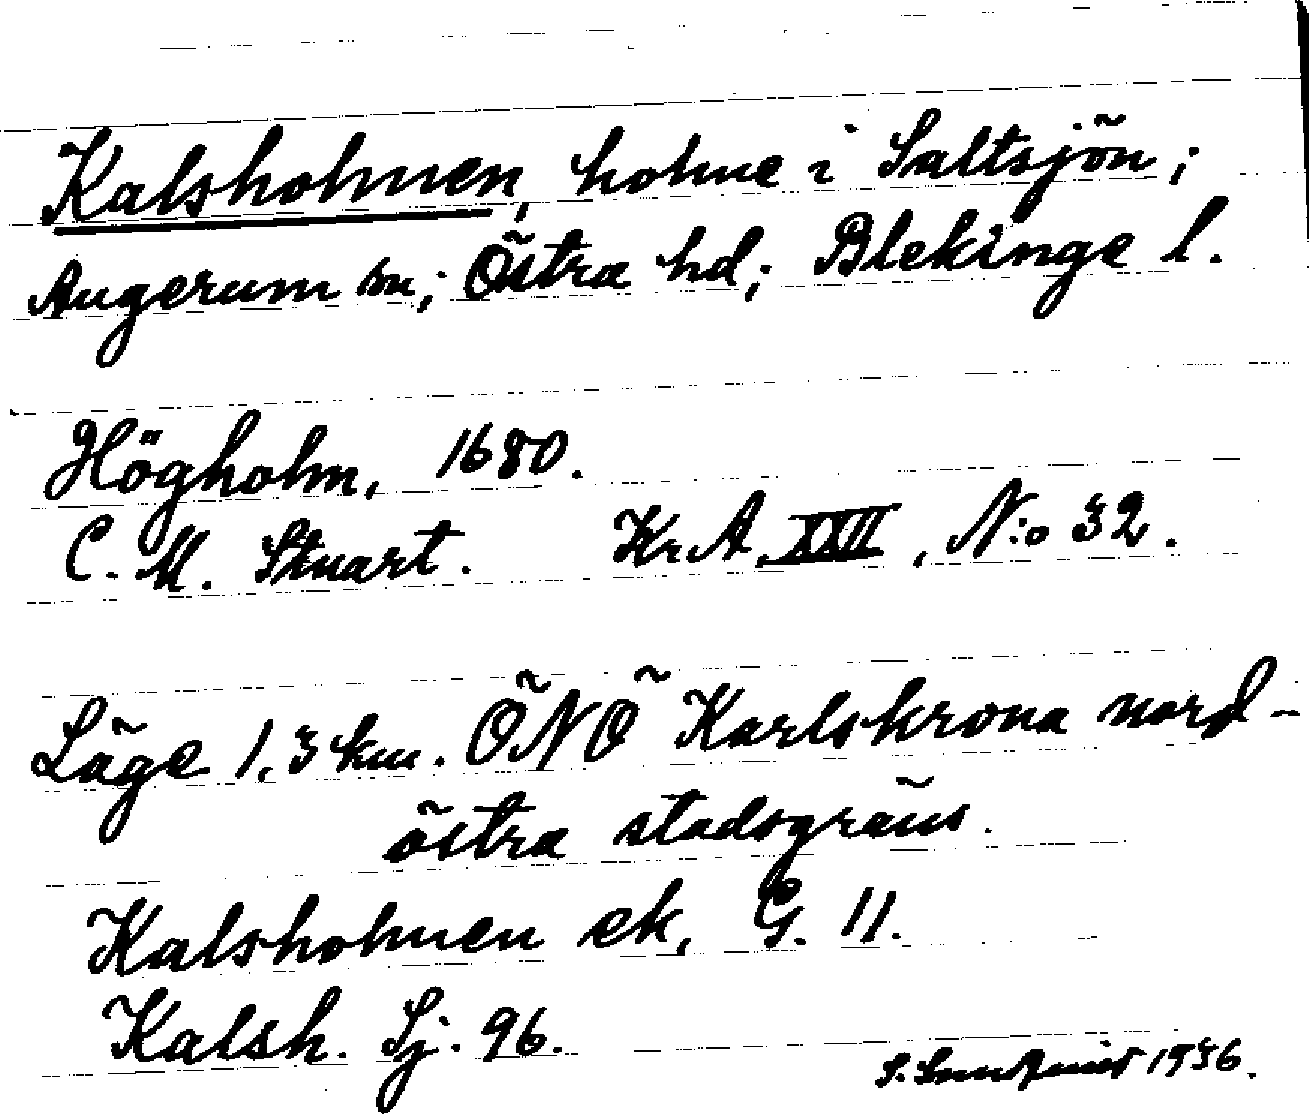 Kalsholmen, holme i Saltsjön;
Augerum sn; Östra hd; Blekinge l.
Högholm, 1680.
C. M. Stuart. Kr. A. XXII, N:o 32.
Läge 1,3 km. ÖNÖ Karlskrona nord-
östra stadsgräns.
Kalsholmen ek, G. 11.
Kalsh. Sj. 96.
S. 1936.